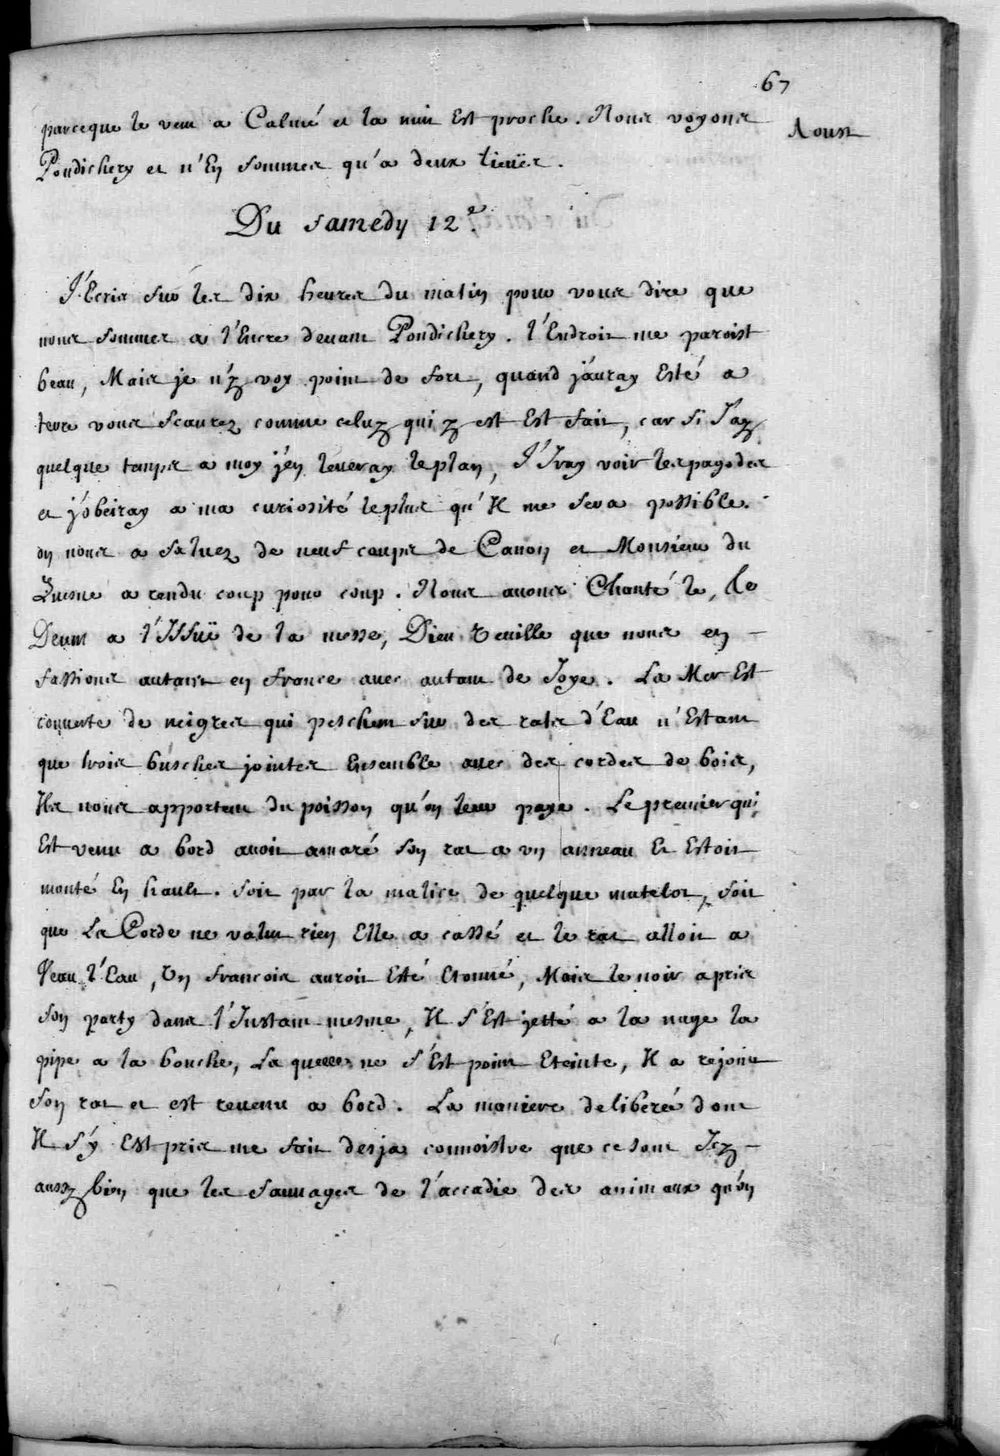 67
Aoust
parceque le vent a Calmé et la nuit Est proche. Nous voyons
Pondichery et n'En sommes qu'a deux lieuës.
Du samedy 12e.
J'Ecris sur les dix heures du matin pour vous dire que
nous sommes a l'Encre devant Pondichery. l'Endroit me paroist
beau, Mais je n'y voy point de fort, quand j'auray Esté a
terre vous scaurez comme celuy qui y est Est fait, car si J'ay
quelque temps a moy j'en leveray le plan, J'Iray voir les pagodes
et j'obeiray a ma curiosité le plus qu'Il me sera possible.
on nous a saluez de neuf coups de Canon et Monsieur du
Quesne a rendu coup pour coup. Nous avons Chanté le, te
Deum a l'Issuë de la messe, Dieu veuille que nous en
fassions autant en france avec autant de Joye. La Mer Est
couverte de neigres qui peschent sur des rats d'Eau n'Estant
que trois busches jointes Ensemble avec des cordes de bois,
Ils nous apportent du poisson qu'on leur paye. Le premier qui
Est venu a bord avoit amaré son rat a vn anneau Et Estoit
monté En hault. soit par la malice de quelque matelot, soit
que La Corde ne valut rien Elle a cassé et le rat alloit a
Veau l'Eau, Vn francois auroit Esté Etonné, Mais le noir a pris
son party dans l'Instant mesme, Il s'Est jetté a la nage la
pipe a la bouche, La quelle ne s'Est point Eteinte, Il a rejoint
son rat et est revenu a bord. La maniere deliberée dont
Il s'y Est pris me fait desja connoistre que ce sont Icy
aussy bien que les sauvages de l'accadie des animaux qu'on